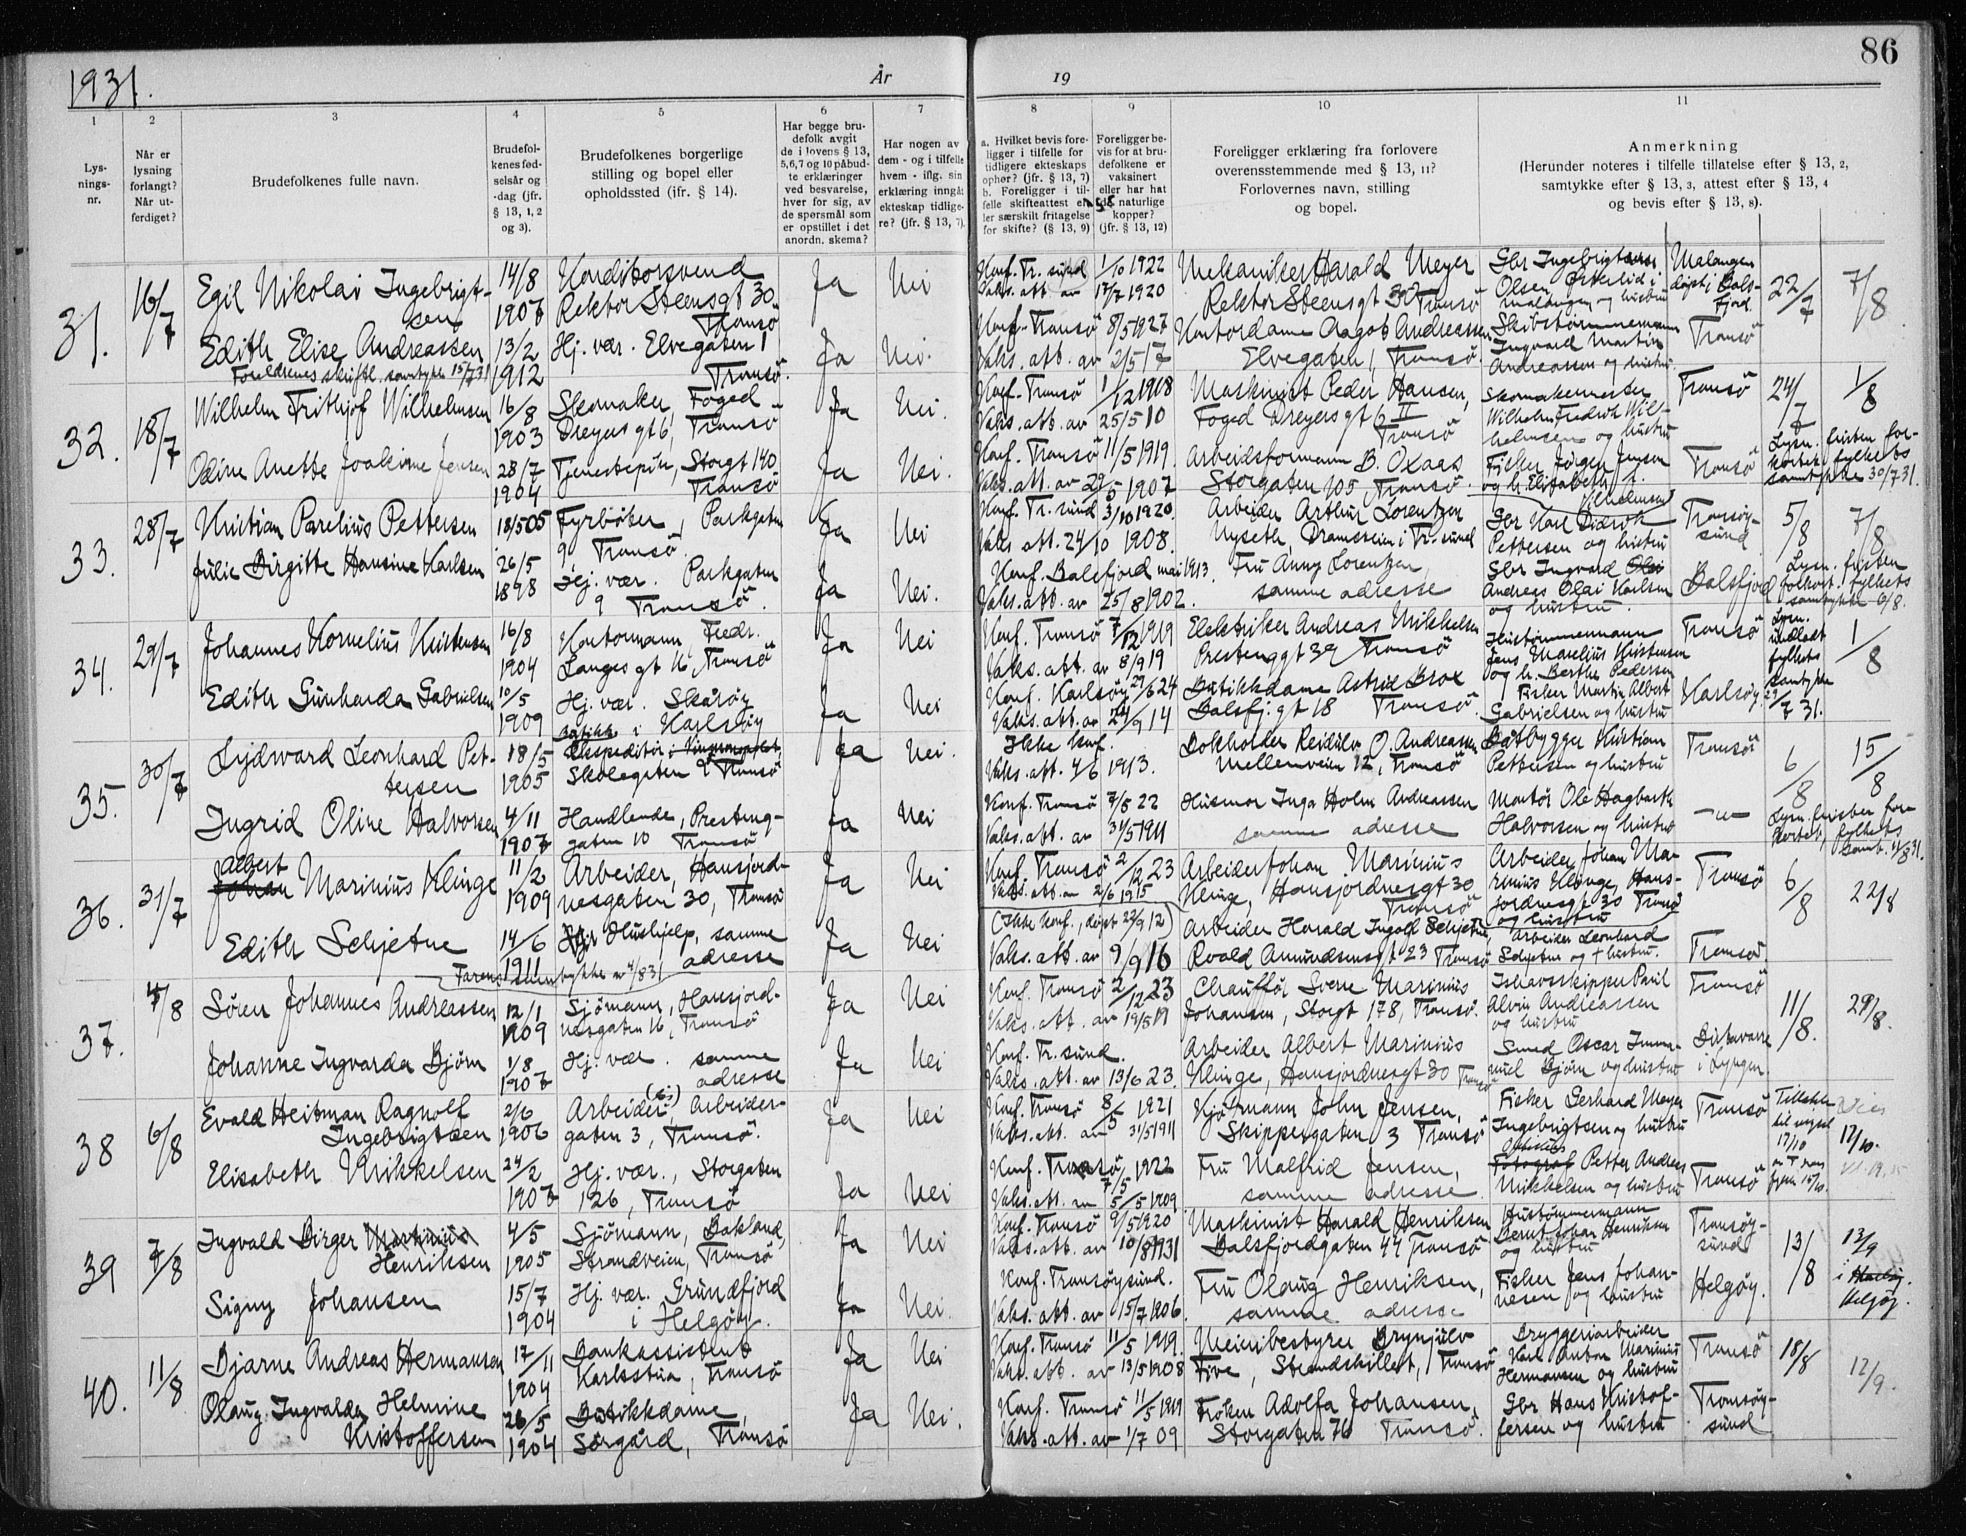 1931.
År
19
86
1
2
3
4
5
6
7
8
9
10
11
Lys-
nings-
nr.
Når er
lysning
forlangt?
Når ut-
ferdiget?
Brudefolkenes fulle navn.
Brudefol-
kenes fød-
selsår og
-dag (jfr.
§ 13, 1, 2
og 3).
Brudefolkenes borgerlige
stilling og bopel eller
opholdssted (jfr. § 14).
Har begge bru-
defolk avgit
de i lovens § 13,
5,6,7 og 10 påbud-
te erklæringer
ved besvarelse,
hver for sig, av
de spørsmål som
er opstillet i det
anordn. skema?
Har nogen av
dem - og i tilfelle
hvem - iflg. sin
erklæring inngåt
ekteskap tidlige-
re? (jfr. § 13, 7).
a. Hvilket bevis fore-
ligger i tilfelle for
tidligere ekteskaps
ophør? (jfr. § 13, 7)
b. Foreligger i til-
felle skifteattest el-
ler særskilt fritagelse
for skifte? (§ 13, 9)
Foreligger be-
vis for at bru-
defolkene er
vaksinert
eller har hat
de naturlige
kopper?
(jfr. § 13, 12)
Foreligger erklæring fra forlovere
overensstemmende med § 13, 11?
Forlovernes navn, stilling
og bopel.
Anmerkning
(Herunder noteres i tilfelle tillatelse efter § 13, 2,
samtykke efter § 13, 3, attest efter § 13, 4
og bevis efter § 13, 8).
31.
16/7
Egil Nikolai Ingebrigt-
sen
14/8
1907
Konditorsvend
Rektor Steensgt 30
Tromsö
Ja
Nei
Konf. Tr. sund 1/10 1922
Vaks. att. av 17/7 1920
Mekaniker Harald Meyer
Rektor Steensgt 30 Tromsö
Gbr Ingebrigt
Olsen Østerlid i
Malangen og hustru
Malangen
døpt i Bals-
fjord
22/7
7/8
Edith Elise Andreassen
Foreldrenes skriftl. samtykke 15/7 31
13/2
1912
Hj. vær. Elvegaten 1
Tromsö.
Ja
Nei.
Konf. Tromsö 8/5 1927
Vaks. att. av 2/5 17
Kontordame Aagot Andreassen
Elvegaten 1, Tromsö.
Skibstömmermann
Ingvard Martin
Andreassen og hustru.
Tromsö
32.
18/7
Wilhelm Frithjof Wilhelmsen
16/8
1903
Skomaker, Foged
Dreyersgt 6, Tromsö
Ja
Nei.
Konf. Tromsö 1/12 1918
Vaks. att. av 25/5 10
Maskinist Peder Hansen,
Foged Dreyersgt 6 II
Tromsö
Skomakermester
Wilhelm Fredrik Wil-
helmsen og hustru
Tromsö
24/7
1/8
Odine Anette Joakime Jensen
28/7
1904
Tjenestepike, Storgt 140
Tromsö
Ja
Nei.
Konf. Tromsö 11/5 1919.
Vaks. att. av 29/5 1907
Arbeidsformann B. Oxaas
Storgaten 105, Tromsö.
Fisker Jörgen Jensen
og h. Elisabeth f.
Vilhelmsen
Tromsö
Lysn. fristen for-
kortet, fylkets
samtykke 30/7 31.
33.
28/7
Kristian Parelius Pettersen
18/5 05
Fyrböter, Parkgaten
9, Tromsö.
Ja
Nei
Konf. Tr. sund 3/10 1920.
Vaks. att. 24/10 1908.
Arbeider Arthur Lorentzen
Nyseth, Dramsveien i Tr. sund
Gbr Karl Didrik
Pettersen og hustru
Tromsöy-
sund
5/8
7/8
Julie Birgitte Hansine Karlsen
26/5
1898
Hj. vær. Parkgaten
9 Tromsö.
Ja
Nei.
Konf. Balsfjord mai 1913.
Vaks. att. av 25/8 1902.
Fru Anny Lorentzen,
samme adresse
Gbr Ingvard
Andreas Olai Karlsen
og hustru.
Balsfjord
Lysn. fristen
forkort. fylkets
samtykke 6/8.
34.
29/7
Johannes Kornelius Kristensen
16/8
1904
Kontormann Fredr.
Langes gt 16, Tromsö
Ja
Nei
Konf. Tromsö 7/12 1919
Vaks. att. av 8/9 19
Elektriker Andreas Mikkelsen
Prestenggt 39 Tromsö
Hustömmermann
Jens Marelius Kristensen
og h. Berthe Pedersen
Tromsö
Lysn.
undlatt
fylkets
samtykke
29/7 31.
1/8
Edith Gunharda Gabrielsen
10/5
1909
Hj. vær. Skåröy
i Karlsöy
Ja
Nei
Konf. Karlsöy 29/6 24
Vaks. att. av 24/9 14
Butikkdame Astrid Brox
Balsfj. gt 18 Tromsö.
Fisker Martin Albert
Gabrielsen og hustru
Karlsöy
35.
30/7
Lydvard Leonhard Pet-
tersen
18/5
1905
Butikk
Ekspeditör i Vinmonopolet,
Skolegaten 9 Tromsö
Ja
Nei.
Ikke konf.
Vaks. att. 4/6 1913.
Bokholder Reidulv O. Andreassen
Mellemveien 12, Tromsö
Båtbygger Kristian
Pettersen og hustru
Tromsö
6/8
15/8
Ingrid Oline Halvorsen
4/11
1907
Handlende, Presteng-
gaten 10 Tromsö
Ja
Nei
Konf. Tromsö 7/5 22
Vaks. att. av 31/5 1911
Husmor Inga Holm Andreassen
samme adresse
Montör Ole Hagbarth
Halvorsen og hustru
—"—
Lysn. fristen for-
kortet, fylkets
samt. 11/8 31.
36.
31/7
Albert
Johan Marinius Klinge
11/2
1909
Arbeider, Hansjord-
nesgaten 30, Tromsö
Ja
Nei
Konf. Tromsö 2/12 23
Vaks. att. av 2/6 1915
Arbeider Johan Marinius
Klinge, Hansjordnesgt 30
Tromsö
Arbeider Johan Ma-
rinius Klinge, Hans-
jordnesgt 30 Tromsö
og hustru
Tromsö
6/8
22/8
Edith Schjetne
14/6
1911
Farens samtykke av 4/8 31
Hushjelp, samme
adresse
Ja
Nei
(Ikke konf., döpt 22/9 12)
Vaks. att. av 9/9 16
Arbeider Harald Ingolf Schjetne,
Roald Amundsensgt 23 Tromsö
Arbeider Leonhard
Schjetne og † hustru.
Tromsö.
37.
4/8
Sören Johannes Andreassen
12/1
1909
Sjömann, Hansjord-
nesgaten 16, Tromsö
Ja
Nei
Konf. Tromsö 2/12 23
Vaks. att. av 19/5 19
Chauffør Sverre Marinius
Johansen, Storgt 178, Tromsö.
Ishavsskipper Paul
Alvin Andreassen
og hustru
Tromsö
11/8.
29/8.
Johanne Ingvarda Björn
1/8
1907
Hj. vær. samme
adresse
Ja
Nei
Konf. Tr. sund.
Vaks. att. av 13/6 23.
Arbeider Albert Marinius
Klinge, Hansjordnesgt 30 Tromsö
Smed Oscar Imma-
nuel Björn og hustru
Birtavarre
i Lyngen.
38
6/8
Evald Heitman Ragnolf
Ingebrigtsen
2/6
1906
Arbeider, Arbeider-
gaten 3, Tromsö.
Ja
Nei
Konf. Tromsö 8/5 1921
Vaks. att. av 31/5 1911
Sjömann John Jensen,
Skippergaten 3 Tromsö
Fisker Gerhard Meyer
Ingebrigtsen og hustru
Tromsö
Tillatelse
til vigsel
17/10
17/10.
Elisabeth Mikkelsen
24/2
1907
Hj. vær., Storgaten
126, Tromsö
Ja
Nei
Konf. Tromsö 7/5 1922
Vaks. att. av 5/5 1909
Fru Malfrid Jensen,
samme adresse.
Fotograf Petter Andreas
Mikkelsen og hustru
Tromsö
39
7/8
Ingvald Birger Martinius
Henriksen
4/5
1905
Sjömann, Bakland,
Strandveien, Tromsö
Ja
Nei
Konf. Tromsö 9/5 1920
Vaks. att. av 10/8 1931
Maskinist Harald Henriksen
Balsfjordgaten 44 Tromsö
Hustömmermann
Bernt Johan Henriksen
og hustru
Tromsöy-
sund
13/8
13/9
i Karlsöy.
Helgöy.
Signy Johansen
15/7
1904
Hj. vær. Grundfjord
i Helgöy.
Ja
Nei.
Konf. Tromsöysund.
Vaks. att. av 15/7 1906.
Fru Olaug Henriksen,
samme adresse
Fisker Jens Johan-
nesen og hustru
Helgöy.
40.
11/8
Bjarne Andreas Hermansen
17/11
1904
Bankassistent
Karlsstua, Tromsö
Ja
Nei
Konf. Tromsö 11/5 1919.
Vaks. att. av 13/5 1908
Meieribestyrer Brynjulv
Five, Strandskillet, 1 Tromsö
Bryggeriarbeider
Karl Anton Marinius
Hermansen og hustru
Tromsö
18/8
12/9.
Olaug Ingvalda Helmine
Kristoffersen
26/5
1904
Butikkdame,
Sörgård, Tromsö
Ja
Nei.
Konf. Tromsö 11/5 1919
Vaks. att. av 1/7 09
Fröken Adolfa Johansen,
Storgaten 76 Tromsö.
Gbr Hans Kristof-
fersen og hustru
Tromsöy-
sund